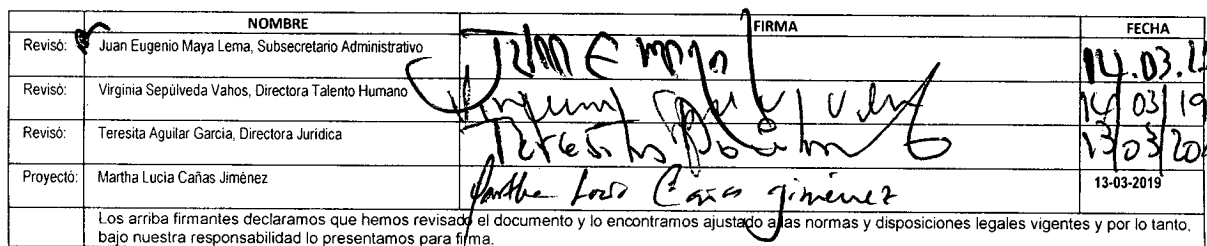 NOMBRE FIRMA FECHA
Revisó: Juan Eugenio Maya Lema, Subsecretario Administrativo Juan E Maya 14.03.
Revisó: Virginia Sepúlveda Vahos, Directora Talento Humano 14/03/19
Revisó: Teresita Aguilar García, Directora Jurídica Teresita 13/03/20
Proyectó: Martha Lucia Cañas Jiménez Martha Lucia Cañas Jiménez 13-03-2019
Los arriba firmantes declaramos que hemos revisado el documento y lo encontramos ajustado a las normas y disposiciones legales vigentes y por lo tanto,
bajo nuestra responsabilidad lo presentamos para firma.